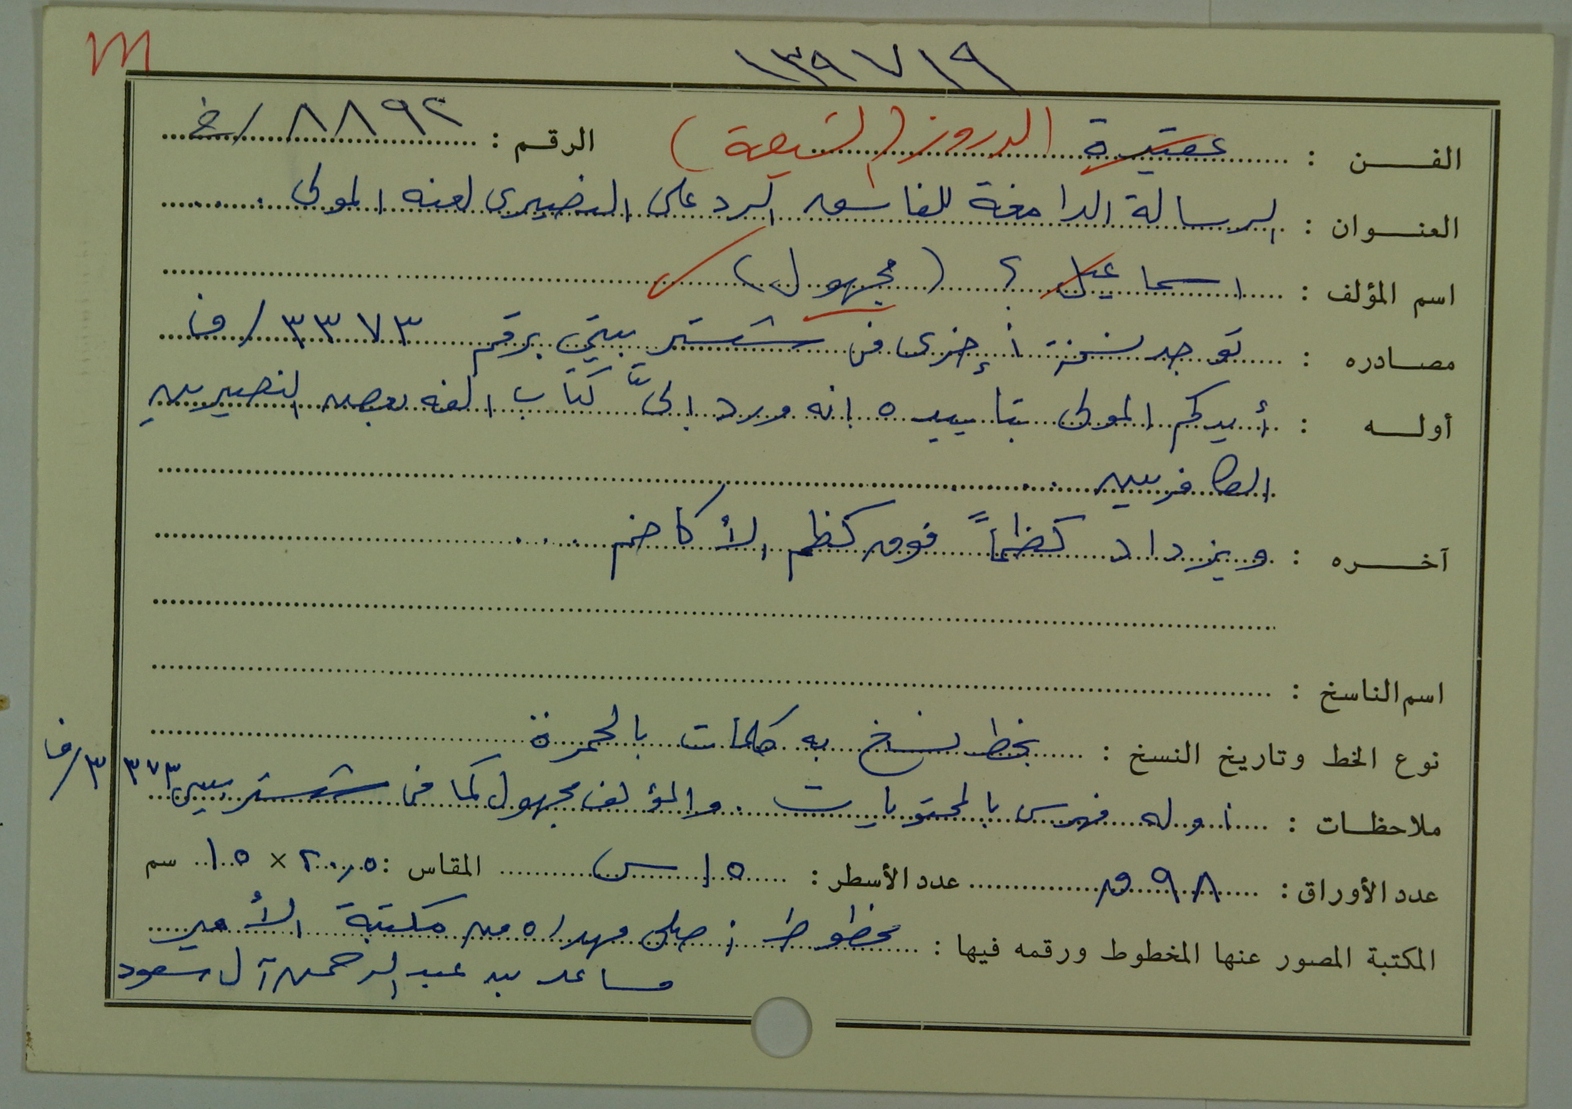 m
١٣٩٧١٩
الفن : عقيدة الدروز (الشيعة) الرقم : ٨٨٩٢/خ
العنوان : الرسالة الدامغة للفاسق الرد على النصيري لعنه المولى ....
اسم المؤلف : اسماعيل ؟ (مجهول)
مصادره : توجد نسخة أخرى في شستر بيتي برقم ٣٣٧٣/ف
أوله : أيدكم المولى بتأييده انه ورد إليَّ كتاب الفه بعض النصيريين
الكافرين ....
آخره : ويزداد كظماً فوق كظم الأكاظم ....
اسم الناسخ :
نوع الخط وتاريخ النسخ : بخط نسخ به كلمات بالحمرة
ملاحظات : أوله فهرس بالمحتويات . والمؤلف مجهول كما في شستر بيتي ٣٣٧٣/ف
عدد الأوراق : ٩٨ ق عدد الأسطر : ١٥ س المقاس : ٢٠,٥ × ١٥ سم
المكتبة المصور عنها المخطوط ورقمه فيها : مخطوط أصلي مهداه من مكتبة الأمير
مساعد بن عبد الرحمن آل سعود